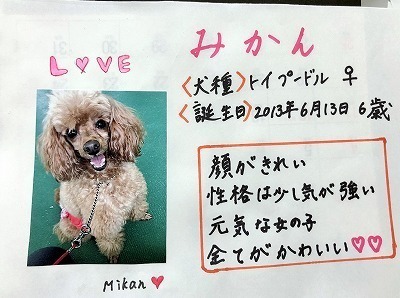 LOVE
みかん
<犬種>トイプードル ♀
<誕生日>2013年6月13日 6歳
顔がきれい
性格は少し気が強い
元気な女の子
全てがかわいい♡♡
Mikan♥